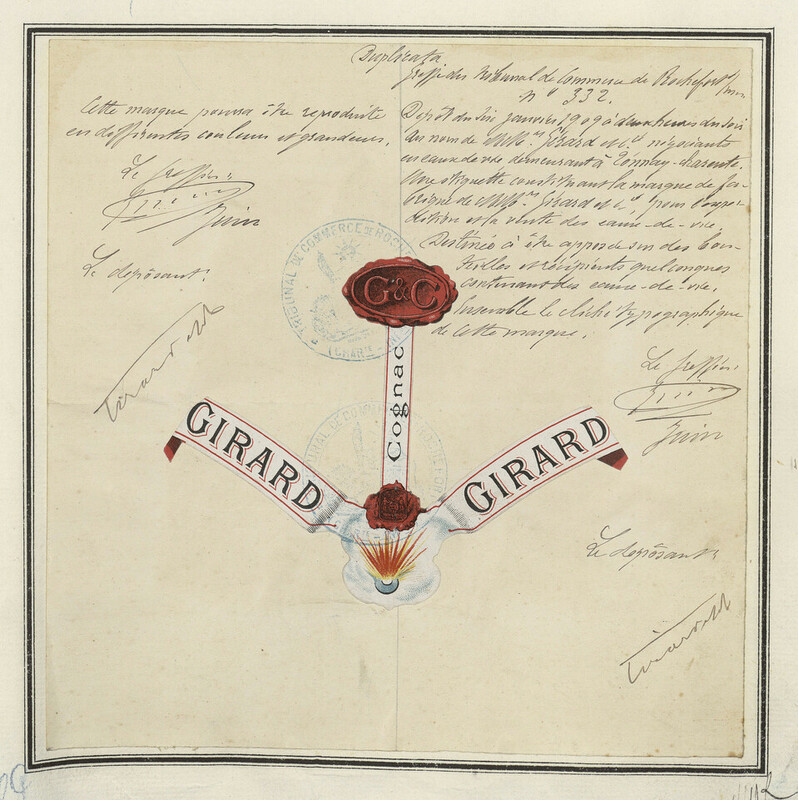 Duplicata
Greffe du Tribunal de Commerce de Rochefort s/mer
n° 332.
Cette marque pourra être reproduite
en différentes couleurs et grandeurs.
Le greffier
Juin
Le déposant:
Girard et Cie
Dépôt du six janvier 1909 à deux heures du soir
Au nom de MM. Girard et Cie négociants
en eaux de vie demeurant à Tonnay-Charente.
Une étiquette constituant la marque de fa-
brique de MM. Girard et Cie pour l'expé-
dition et la vente des eaux-de-vie.
Destinée à être apposée sur des bou-
teilles et récipients quelconques
contenant des eaux-de-vie.
Ensemble le cliché typographique
de cette marque.
Le greffier
Juin
Le déposant
Girard et Cie
TRIBUNAL DE COMMERCE DE ROCHE
G&C
Cognac
GIRARD
GIRARD